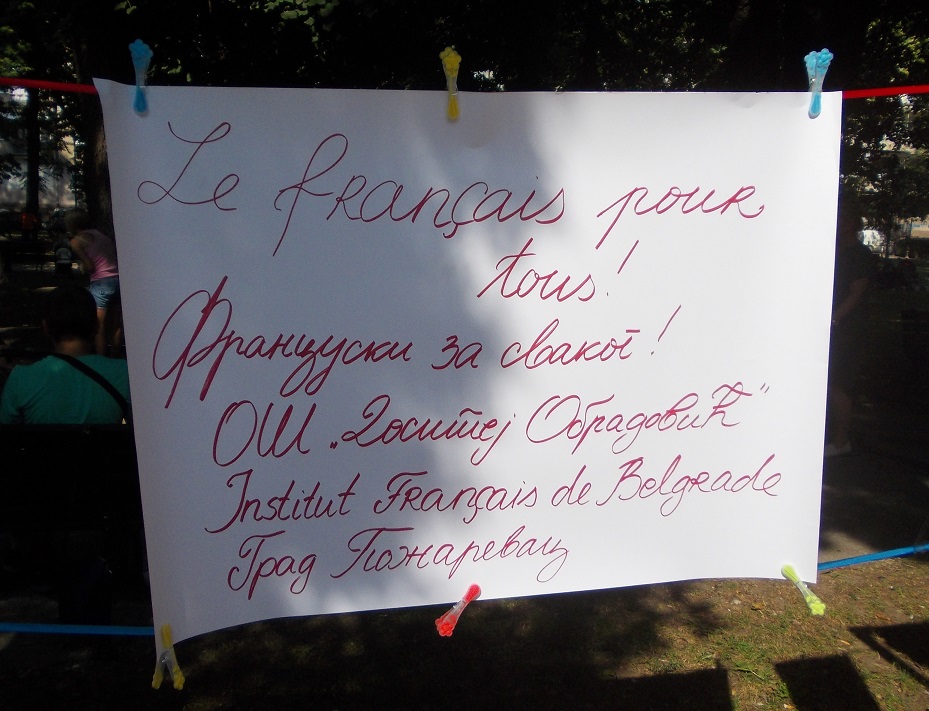 Le français pour
tous!
Француски за сваког!
ОШ „Доситеј Обрадовић"
Institut Français de Belgrade
Град Пожаревац